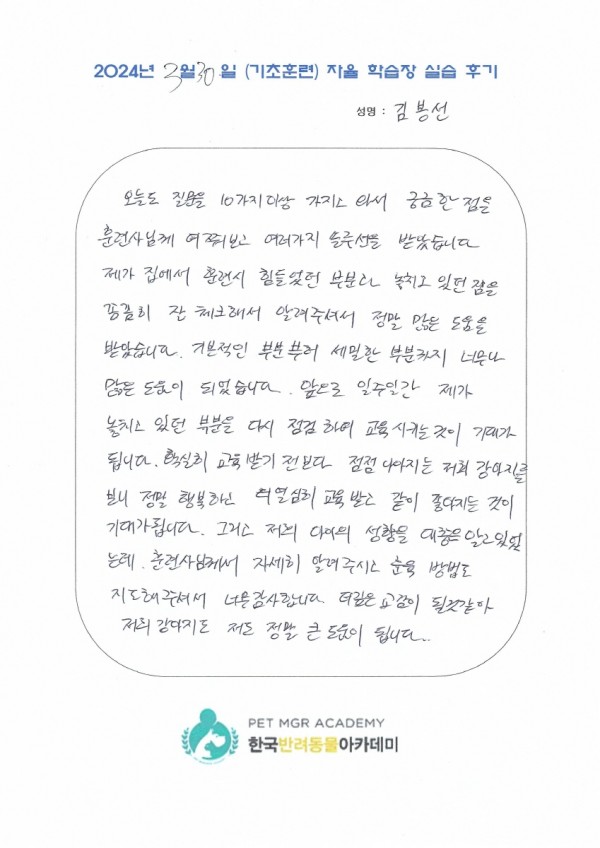 2024년 3월 30일 (기초훈련) 자율 학습장 실습 후기
성명 : 김봉선
오늘도 질문을 10가지이상 가지고 와서 궁금한 점을
훈련사님께 여쭤보고 여러가지 솔루션을 받았습니다
제가 집에서 훈련시 힘들었던 부분과 놓치고 있던 점을
꼼꼼히 잔 체크해서 알려주셔서 정말 많은 도움을
받았습니다. 기본적인 부분부터 세밀한 부분까지 너무나
많은 도움이 되었습니다. 앞으로 일주일간 제가
놓치고 있던 부분을 다시 점검 하여 교육시키는것이 기대가
됩니다. 확실히 교육받기 전보다 점점 나아지는 저희 강아지를
보니 정말 행복하고 더열심히 교육받고 같이 좋아지는 것이
기대가됩니다. 그리고 저희 다이의 성향을 대충은 알고있었
는데. 훈련사님께서 자세히 알려주시고 훈육 방법도
지도해주셔서 너무감사합니다 더깊은 교감이 될것같아
저희 강아지도 저도 정말 큰 도움이 됩니다..
PET MGR ACADEMY
한국반려동물아카데미